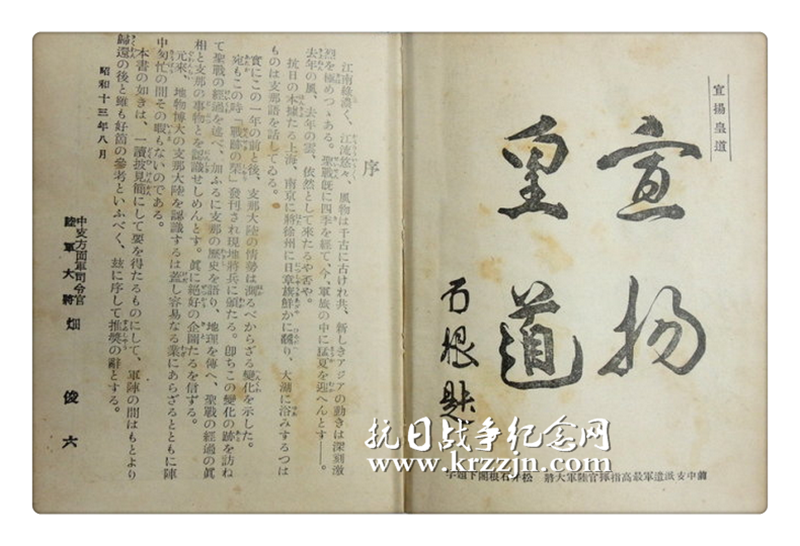 宣揚皇道
宣揚
皇道
石根題
前中支派遣軍最高指揮官陸軍大將 松井石根閣下題字
序
江南綠濃く、江流悠々、風物は千古に古けれ共、新しきアジアの動きは深刻激
烈を極めつゝある。聖戰既に四季を經て、今、軍旅の中に猛夏を迎へんとす――。
去年の風、去年の雲、依然として來たるや否や。
抗日の本據たる上海、南京に將徐州に日章旗鮮かに翻り、大湖に浴みするつは
ものは支那語を話してゐる。
實にこの一年の前と後、支那大陸の情勢は測るべからざる變化を示した。
宛もこの時「戰跡の栞」發刊され現地將兵に頒たる。卽ちこの變化の跡を訪ね
て聖戰の經過を述べ、加ふるに支那の歷史を語り、地理を傳へ、聖戰の經過の眞
相と支那の事物とを認識せしめんとす。眞に絕好の企圖たるを信ずる。
元來、地物博大の支那大陸を認識するは蓋し容易なる業にあらざるとともに陣
中匆忙の間その暇もないのである。
本書の如きは、一讀披見簡にして要を得たるものにして、軍陣の間はもとより
歸還の後と雖も好箇の參考といふべく、玆に序して推奬の辭とする。
昭和十三年八月
中支方面軍司令官
陸軍大將 畑 俊六
抗日战争纪念网
www.krzzjn.com